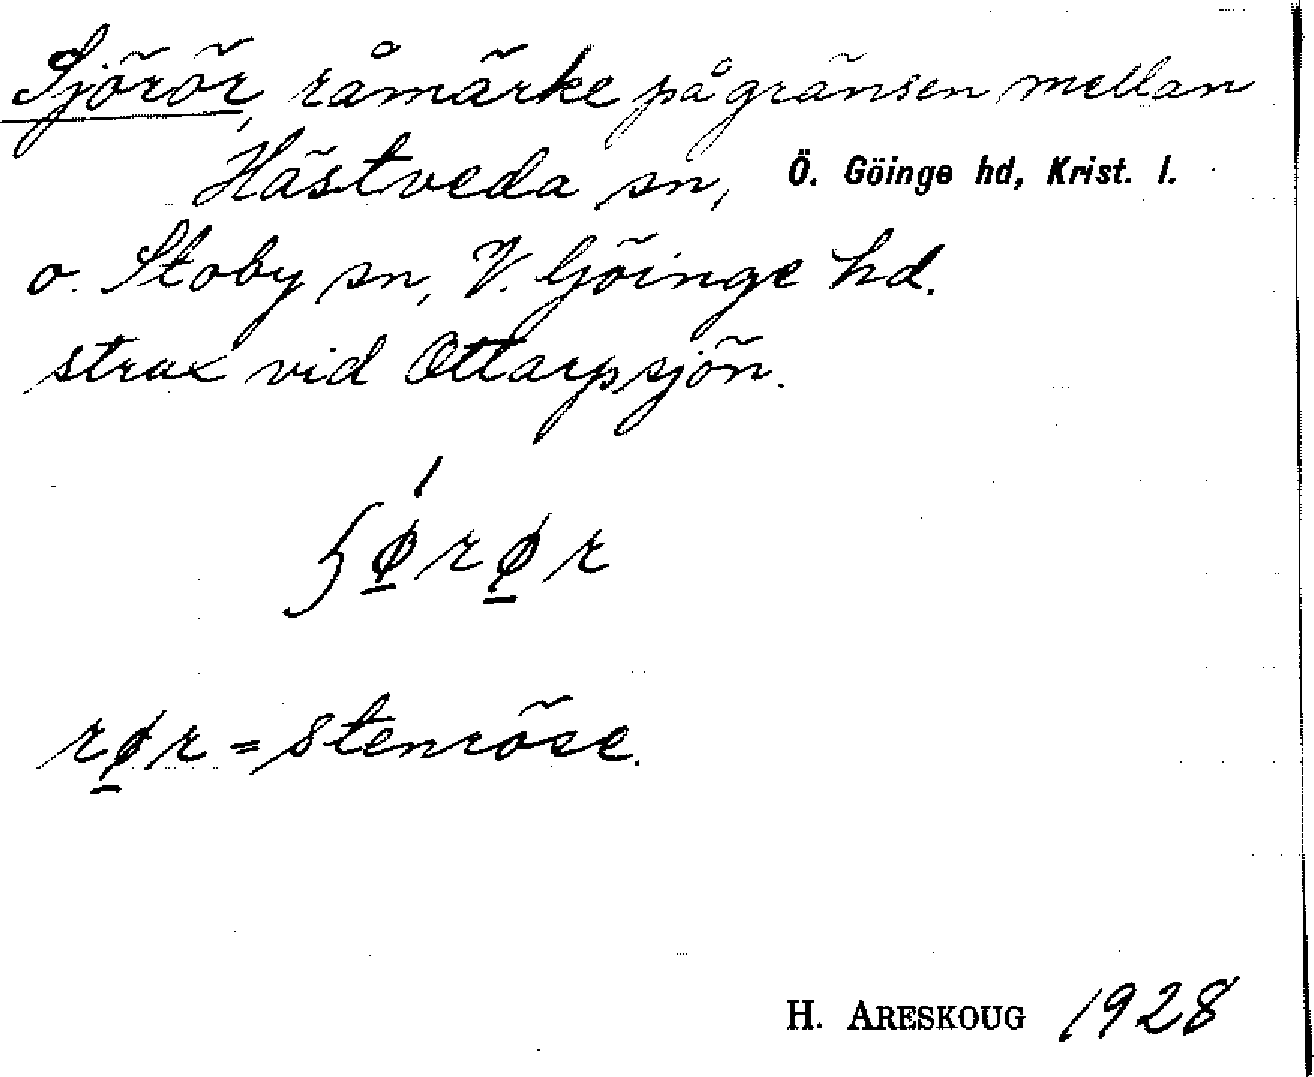 Sjörör, råmärke på gränsen mellan
Hästveda sn, Ö. Göinge hd, Krist. l.
o. Stoby sn, V. Göinge hd.
strax vid Ottarpsjön.
ʃǿ̲rø̲r
rø̲r = stenröse.
H. ARESKOUG 1928